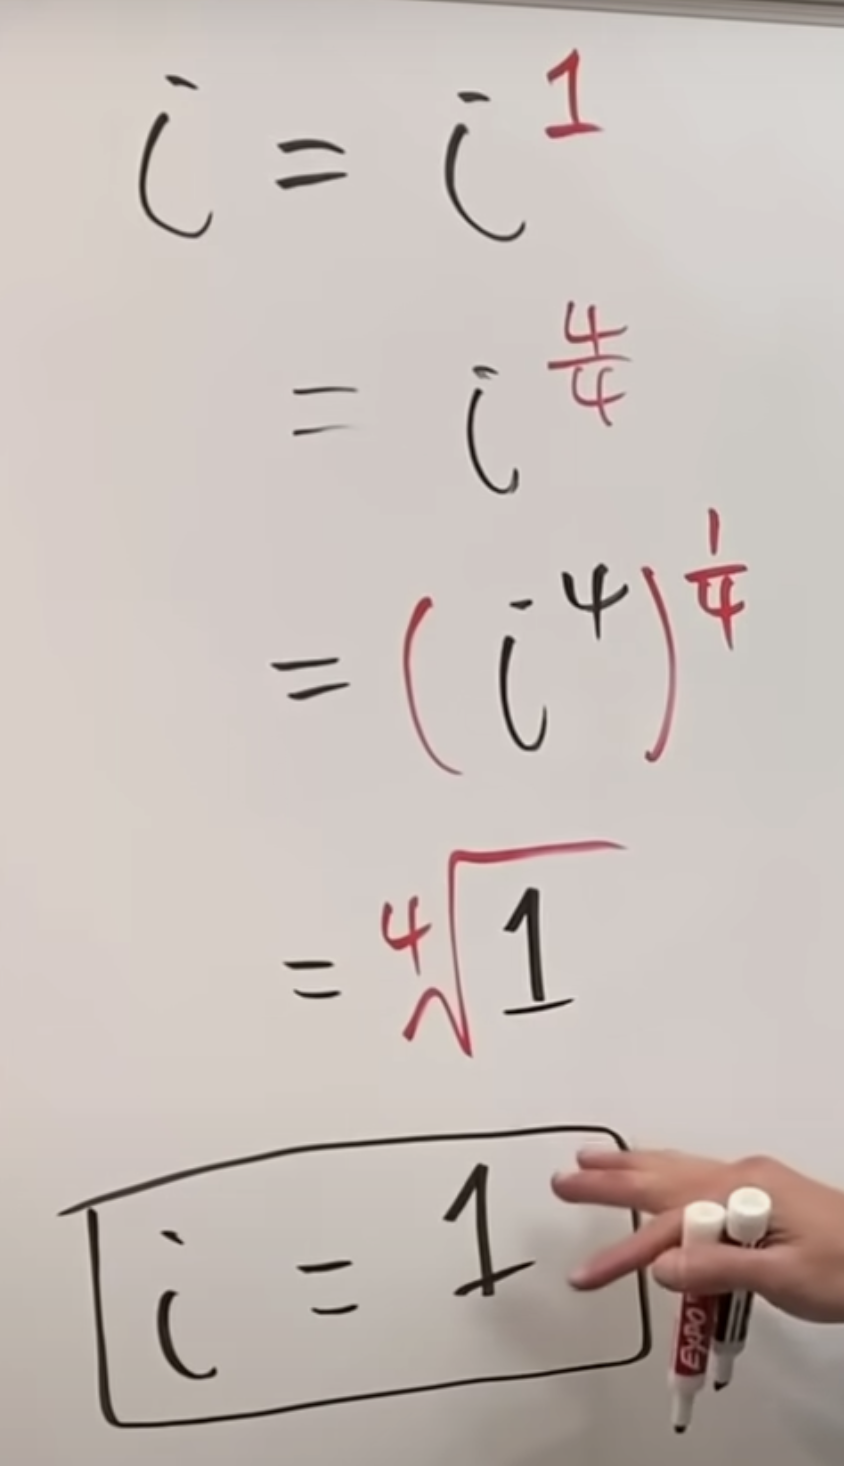 i = i¹
= i^(4/4)
= (i⁴)^(1/4)
= ⁴√1
i = 1
EXPO